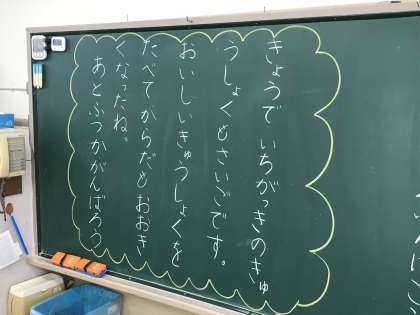 きょうで いちがっきのきゅ
うしょくもさいごです。
おいしいきゅうしょくを
たべてからだもおおき
くなったね。
あとふつかがんばろう